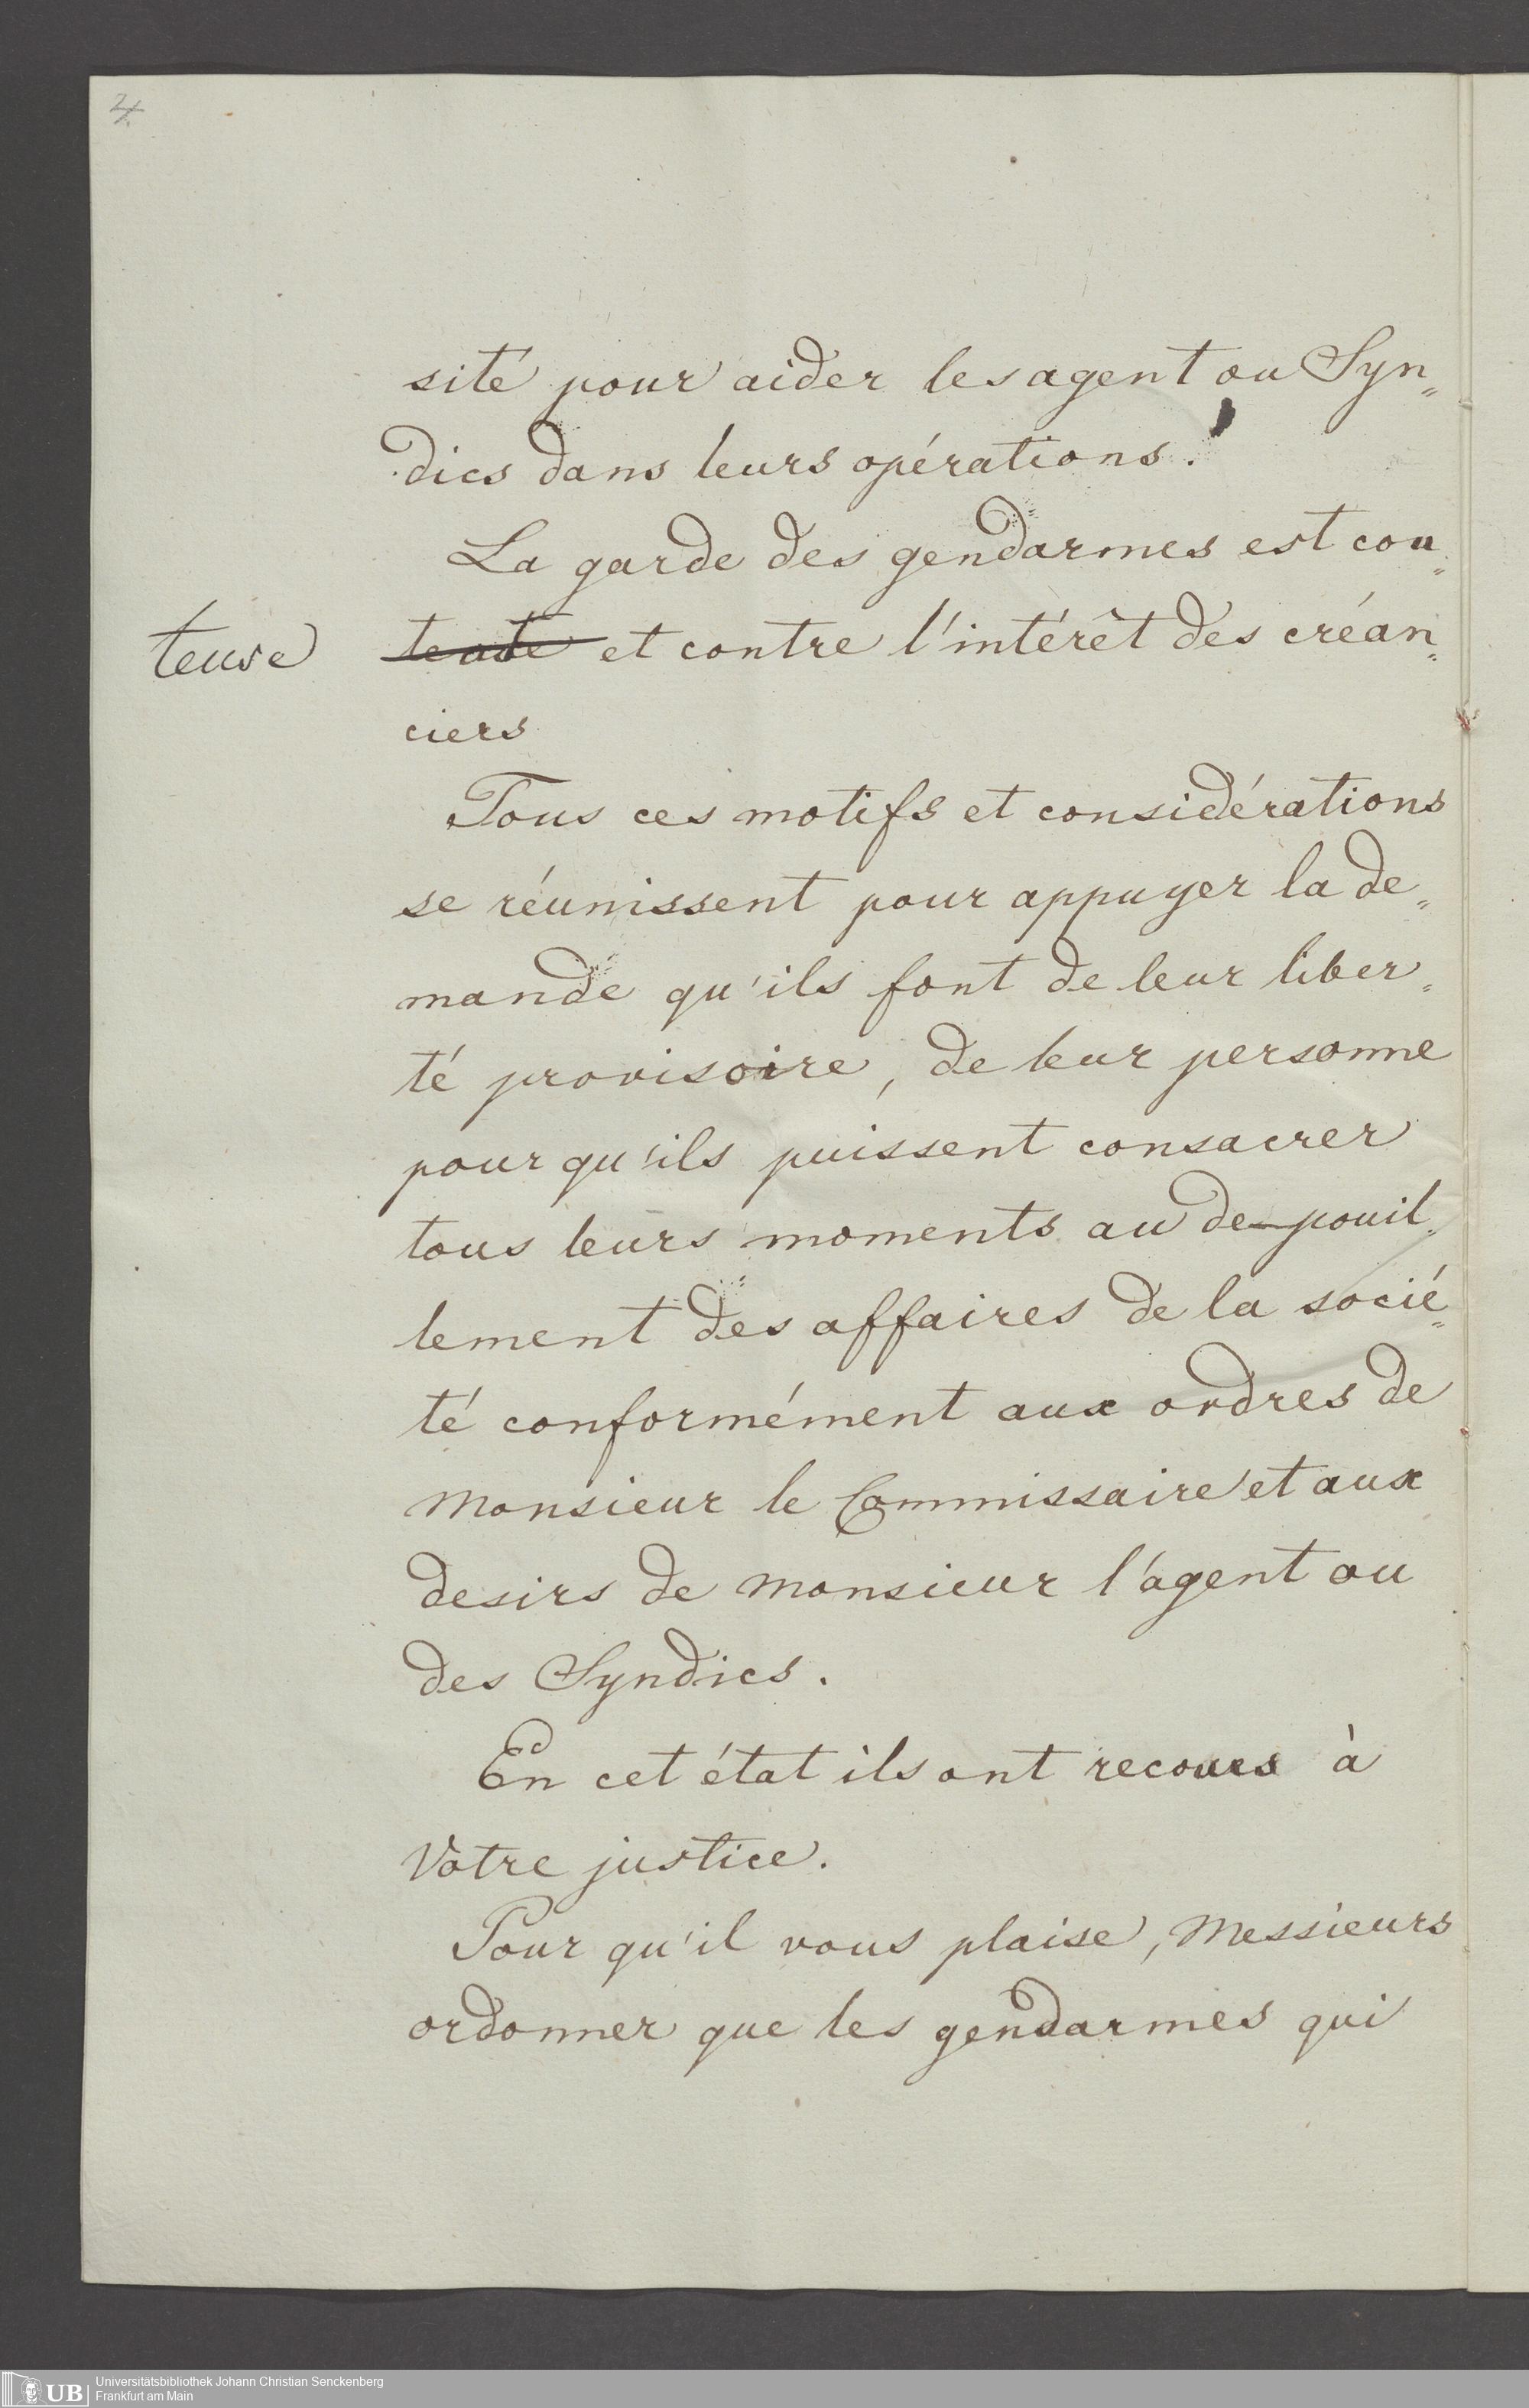 4
sité pour aider les agent ou Syn„
dics dans leurs opérations.
La garde des gendarmes est cou„
teuse
et contre l'intérêt des créan„
ciers
Tous ces motifs et considérations
se réunissent pour appuyer la de„
mande qu'ils font de leur liber„
té provisoire, de leur personne
pour qu'ils puissent consacrer
tous leurs moments au de-pouil„
lement des affaires de la socié„
té conformément aux ordres de
Monsieur le Commissaire et aux
desirs de Monsieur l'agent ou
des Syndics.
En cet état ils ont recours à
Votre justice.
Pour qu'il vous plaise, Messieurs
ordonner que les gendarmes qui
UB
Universitätsbibliothek Johann Christian Senckenberg
Frankfurt am Main